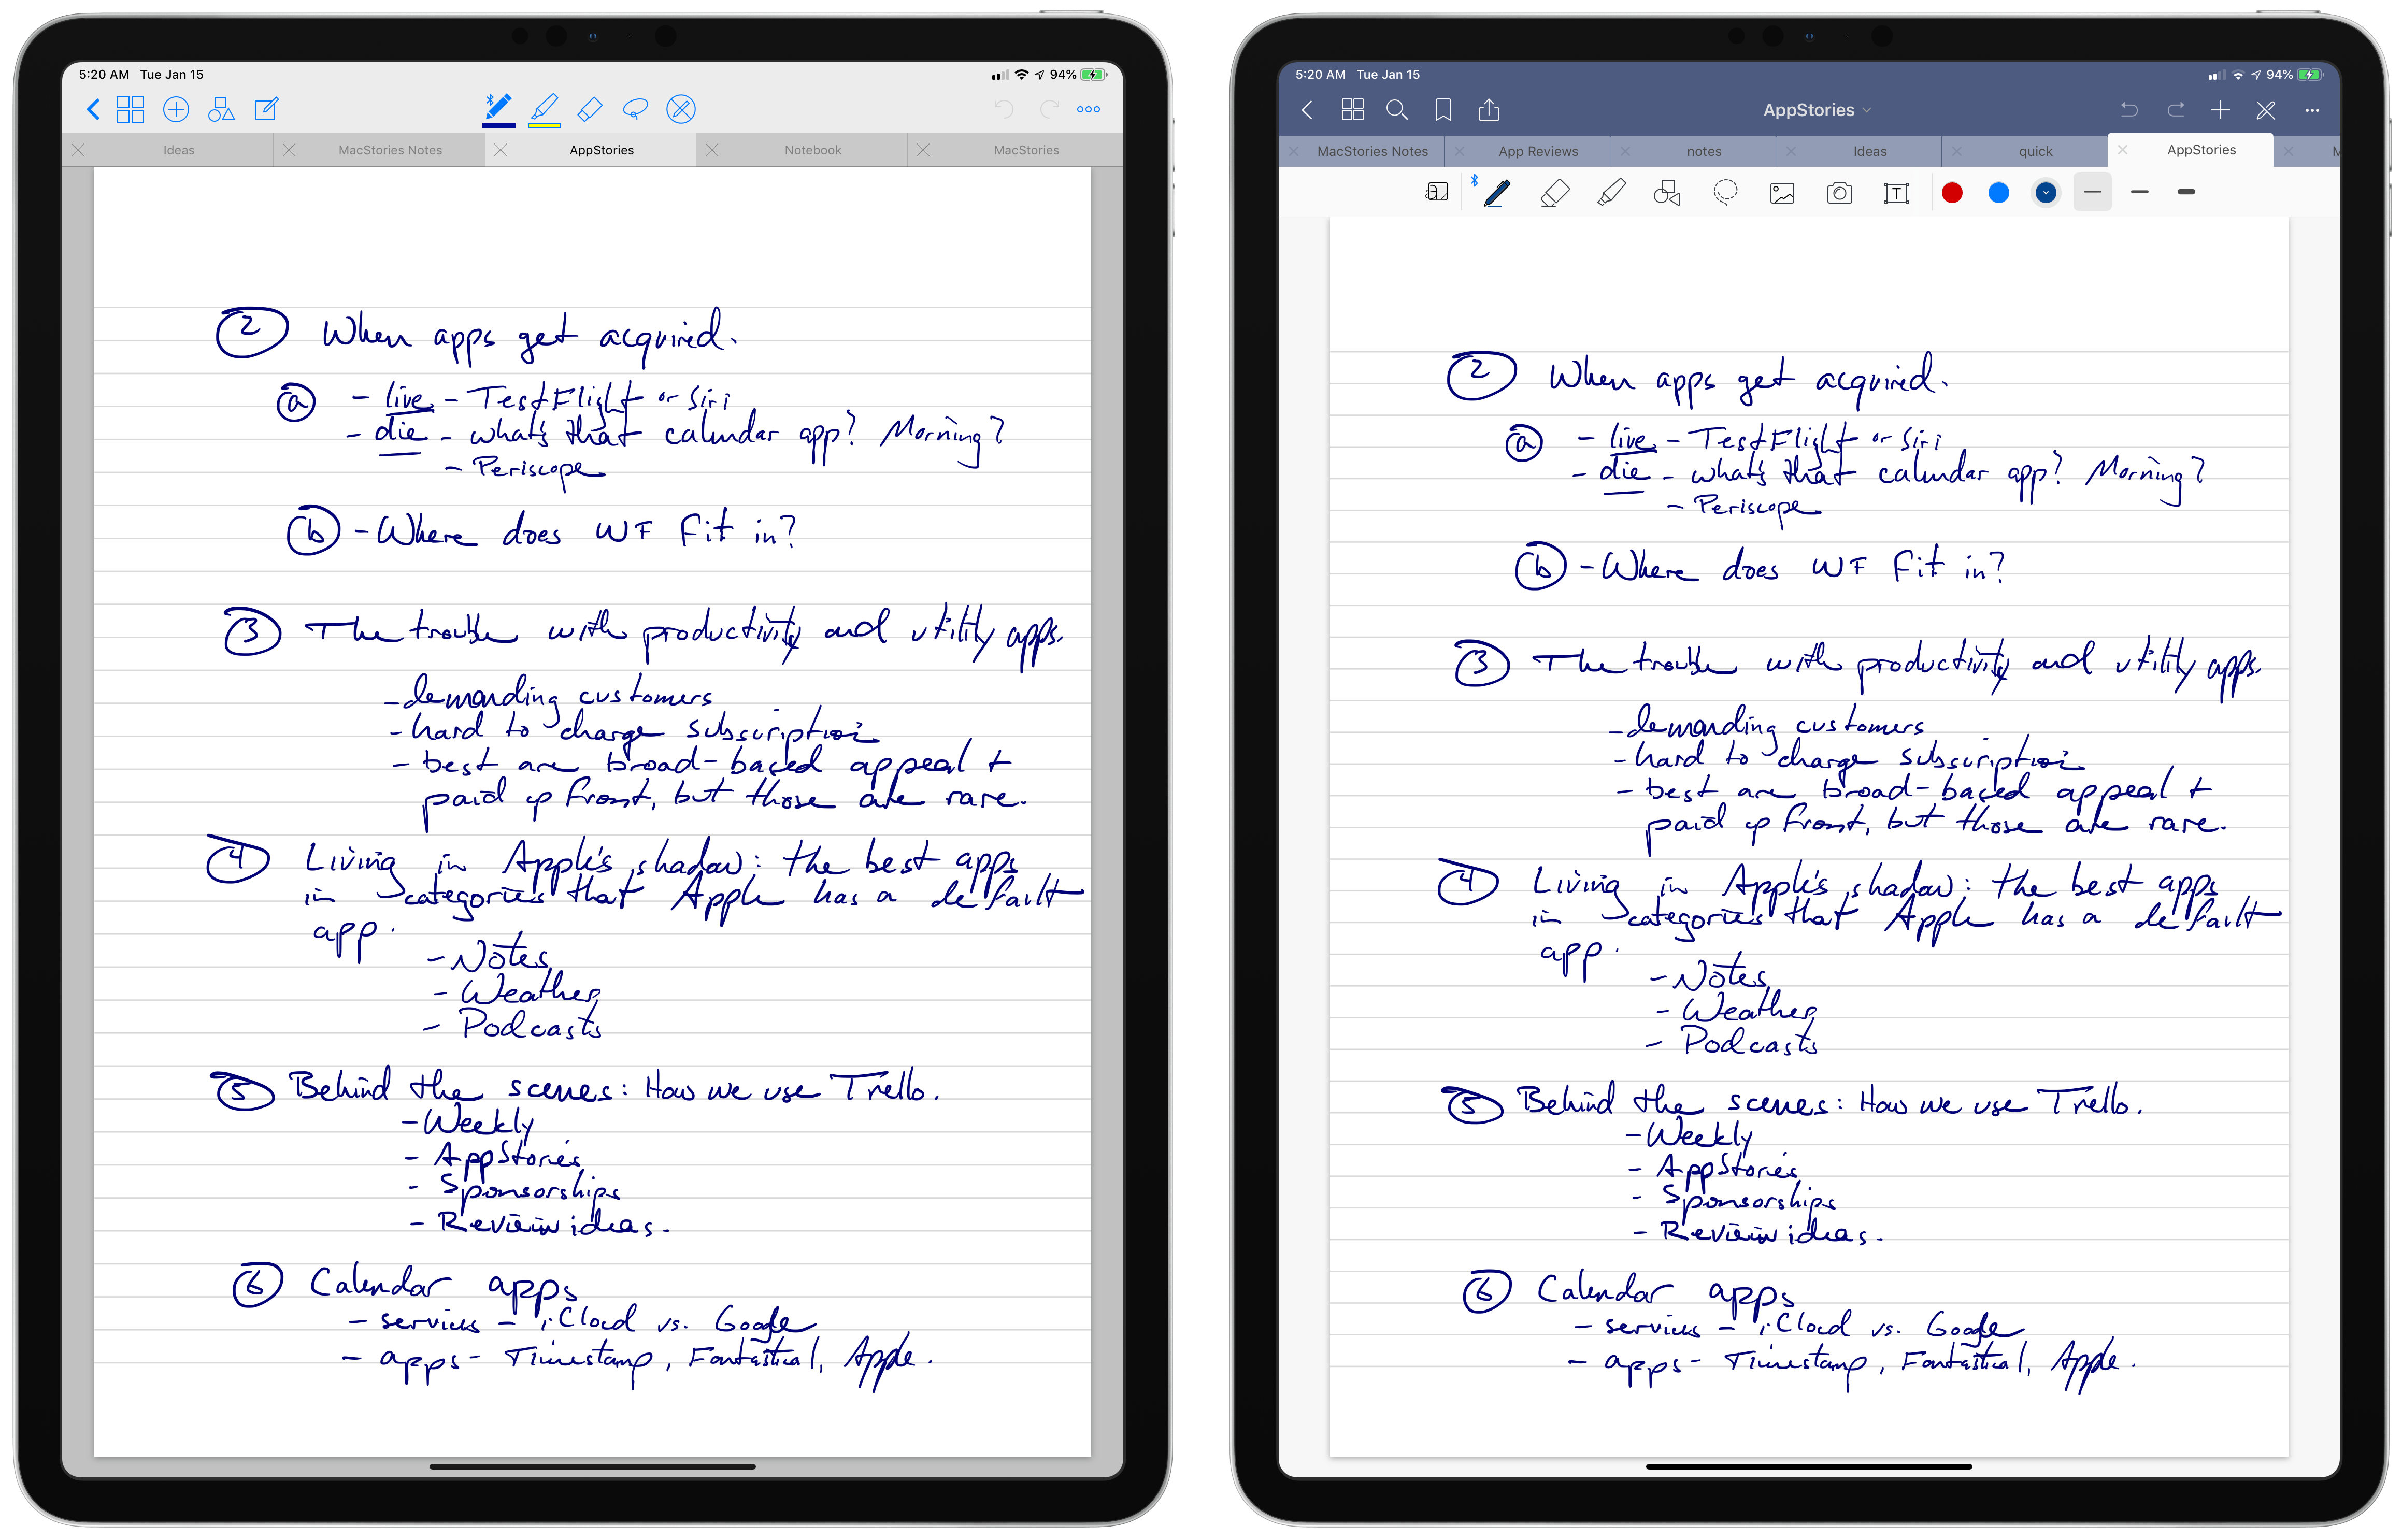 5:20 AM Tue Jan 15
94%
Ideas
MacStories Notes
AppStories
Notebook
MacStories
2 When apps get acquired.
a - live - TestFlight or Siri
- die - what's that calendar app? Morning?
- Periscope
b - Where does WF fit in?
3 The trouble with productivity and utility apps.
- demanding customers
- hard to charge subscription
- best are broad-based appeal +
paid up front, but those are rare.
4 Living in Apple's shadow: the best apps
in categories that Apple has a default
app.
- Notes
- Weather
- Podcasts
5 Behind the scenes: How we use Trello.
- Weekly
- AppStories
- Sponsorships
- Review ideas.
6 Calendar apps
- services - iCloud vs. Google
- apps - Timestamp, Fantastical, Apple.
5:20 AM Tue Jan 15
94%
AppStories
MacStories Notes
App Reviews
notes
Ideas
quick
AppStories
M
T
2 When apps get acquired.
a - live - TestFlight or Siri
- die - what's that calendar app? Morning?
- Periscope
b - Where does WF fit in?
3 The trouble with productivity and utility apps.
- demanding customers
- hard to charge subscription
- best are broad-based appeal +
paid up front, but those are rare.
4 Living in Apple's shadow: the best apps
in categories that Apple has a default
app.
- Notes
- Weather
- Podcasts
5 Behind the scenes: How we use Trello.
- Weekly
- AppStories
- Sponsorships
- Review ideas.
6 Calendar apps
- services - iCloud vs. Google
- apps - Timestamp, Fantastical, Apple.